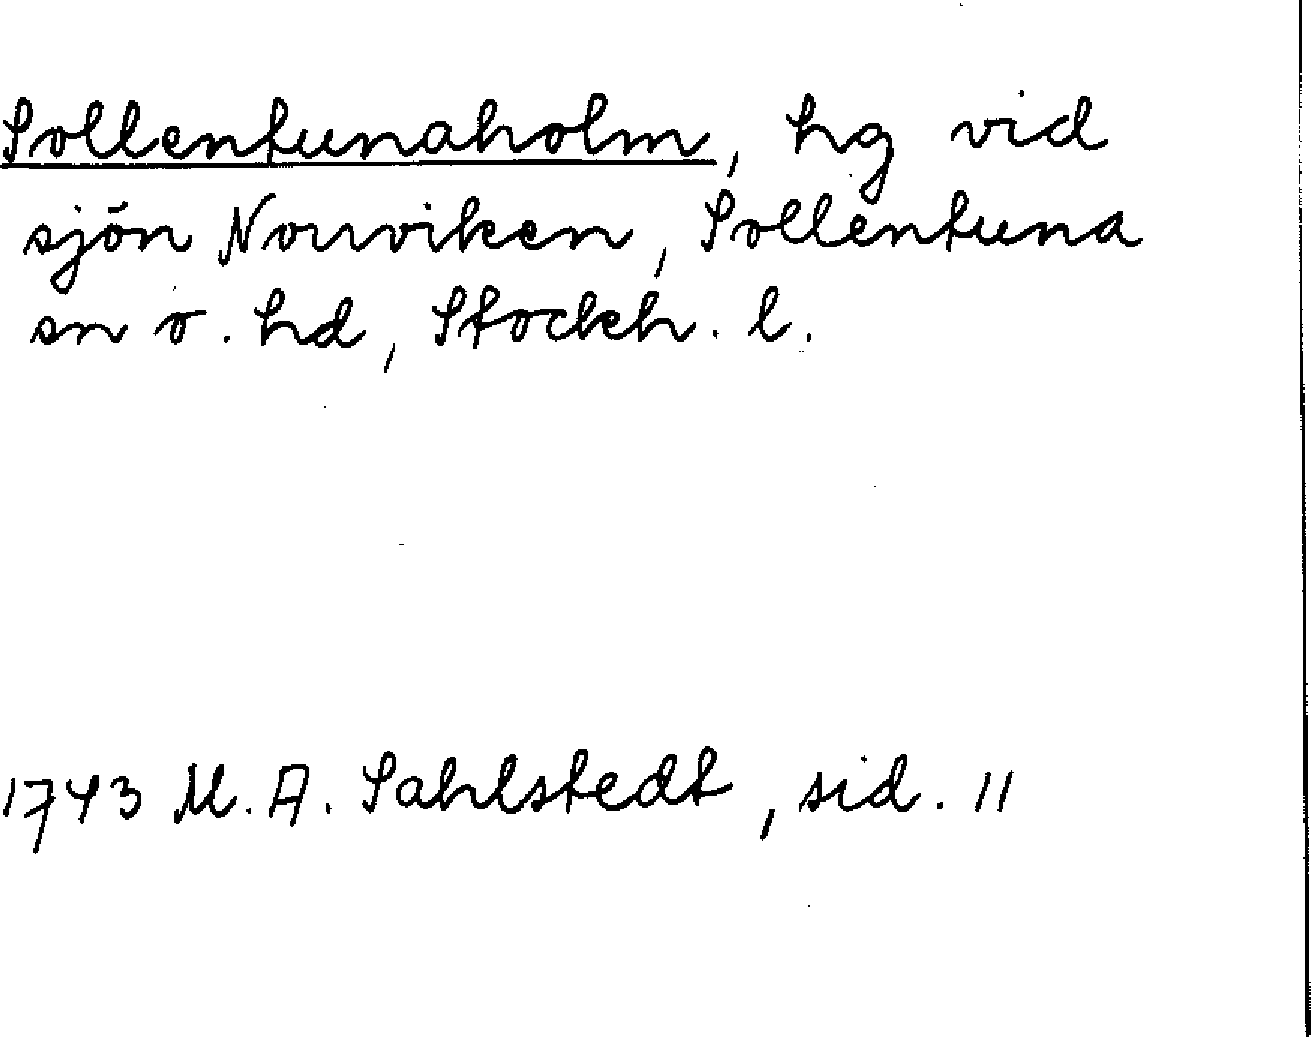 Sollentunaholm, hg vid
sjön Norrviken, Sollentuna
sn o. hd, Stockh. l.
1743 M. A. Sahlstedt, sid. 11